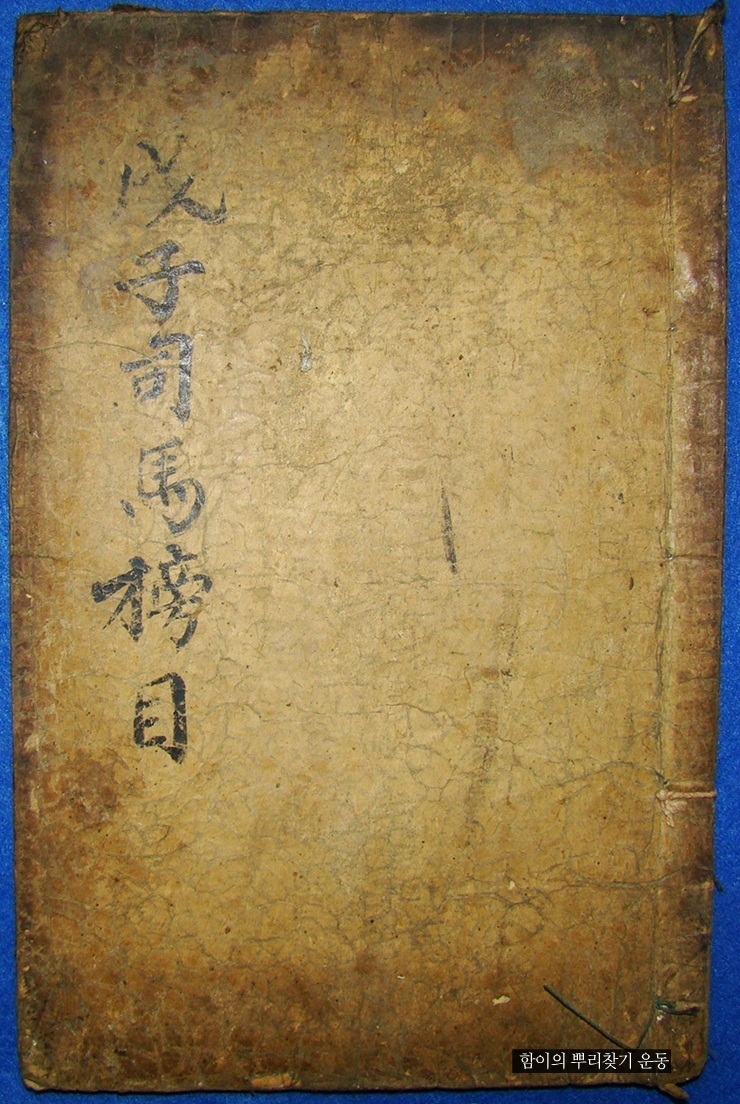 戊子司馬榜目
함이의 뿌리찾기 운동